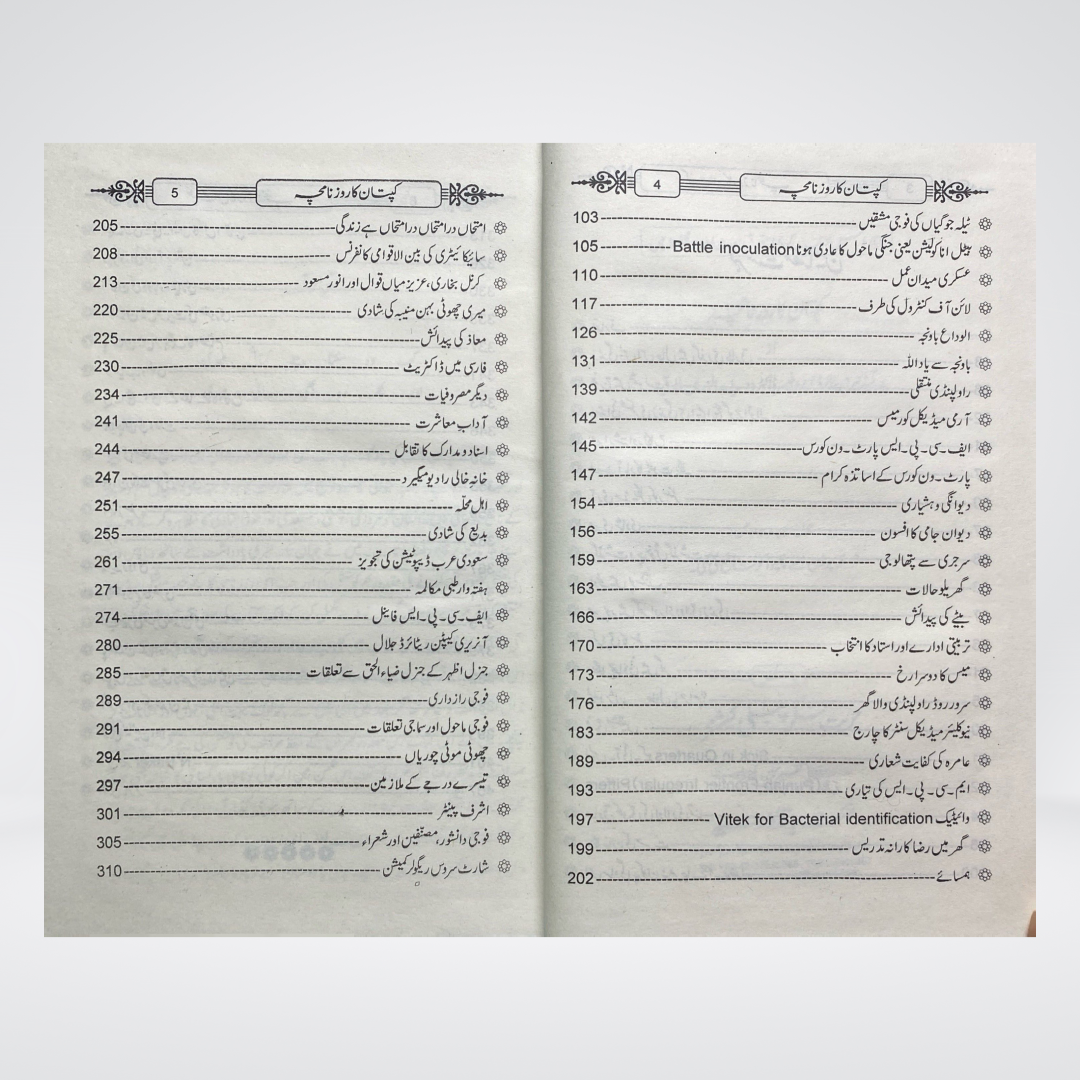 4 کپتان کا روزنامچہ
ٹیلہ جوگیاں کی فوجی مشقیں 103
بیٹل اناکولیشن یعنی جنگی ماحول کا عادی ہونا Battle inoculation 105
عسکری میدان عمل 110
لائن آف کنٹرول کی طرف 117
الوداع باونجہ 126
باونجہ سے یاد اللہ 131
راولپنڈی منتقلی 139
آرمی میڈیکل کور میس 142
ایف۔سی۔پی۔ایس پارٹ۔ون کورس 145
پارٹ۔ون کورس کے اساتذہ کرام 147
دیوانگی و ہشیاری 154
دیوان جامی کا افسون 156
سرجری سے پتھالوجی 159
گھریلو حالات 163
بیٹے کی پیدائش 166
تربیتی ادارے اور استاد کا انتخاب 170
میس کا دوسرا رخ 173
سرور روڈ راولپنڈی والا گھر 176
نیوکلیئر میڈیکل سنٹر کا چارج 183
عامرہ کی کفایت شعاری 189
ایم۔سی۔پی۔ایس کی تیاری 193
وائیٹیک Vitek for Bacterial identification 197
گھر میں رضا کارانہ تدریس 199
ہمسائے 202
5 کپتان کا روزنامچہ
امتحاں در امتحاں در امتحاں ہے زندگی 205
سائیکائیٹری کی بین الاقوامی کانفرنس 208
کرنل بخاری، عزیز میاں قوال اور انور مسعود 213
میری چھوٹی بہن منیبہ کی شادی 220
معاذ کی پیدائش 225
فارسی میں ڈاکٹریٹ 230
دیگر مصروفیات 234
آداب معاشرت 241
اسناد و مدارک کا تقابل 244
خانہ خالی را دیو میگیرد 247
اہل محلّہ 251
بدیع کی شادی 255
سعودی عرب ڈیپوٹیشن کی تجویز 261
ہفتہ وار طبی مکالمہ 271
ایف۔سی۔پی۔ایس فائینل 274
آنریری کیپٹن ریٹائرڈ جلال 280
جنرل اظہر کے جنرل ضیاء الحق سے تعلقات 285
فوجی رازداری 289
فوجی ماحول اور سماجی تعلقات 291
چھوٹی موٹی چوریاں 294
تیسرے درجے کے ملازمین 297
اشرف پینٹر 301
فوجی دانشور، مصنّفین اور شعراء 305
شارٹ سروس ریگولر کمیشن 310